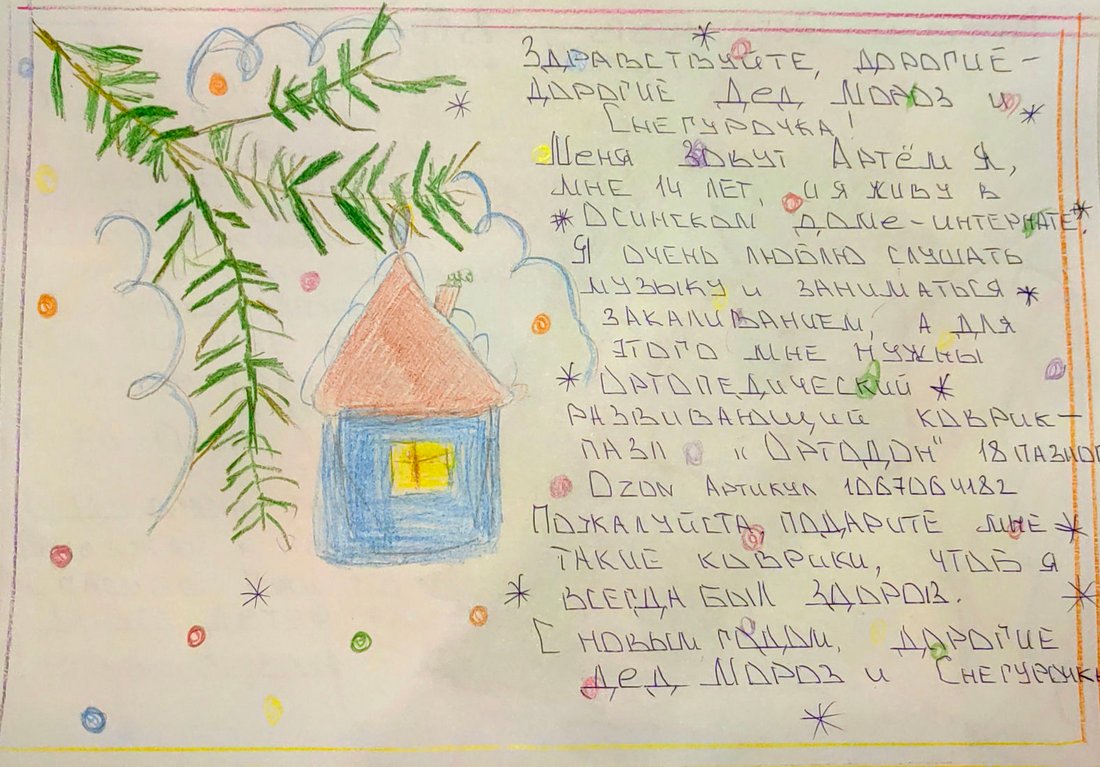 Здравствуйте, дорогие-
дорогие Дед Мороз и
Снегурочка!
Меня зовут Артём Я,
мне 14 лет, и я живу в
Осинском доме-интернате.
Я очень люблю слушать
музыку и заниматься
закаливанием, а для
этого мне нужны
Ортопедический
развивающий коврик-
пазл "Ортодон" 18 пазлов
Ozon Артикул 1067064182
Пожалуйста подарите мне
такие коврики, чтоб я
всегда был здоров.
С новым годом, дорогие
Дед Мороз и Снегурочка